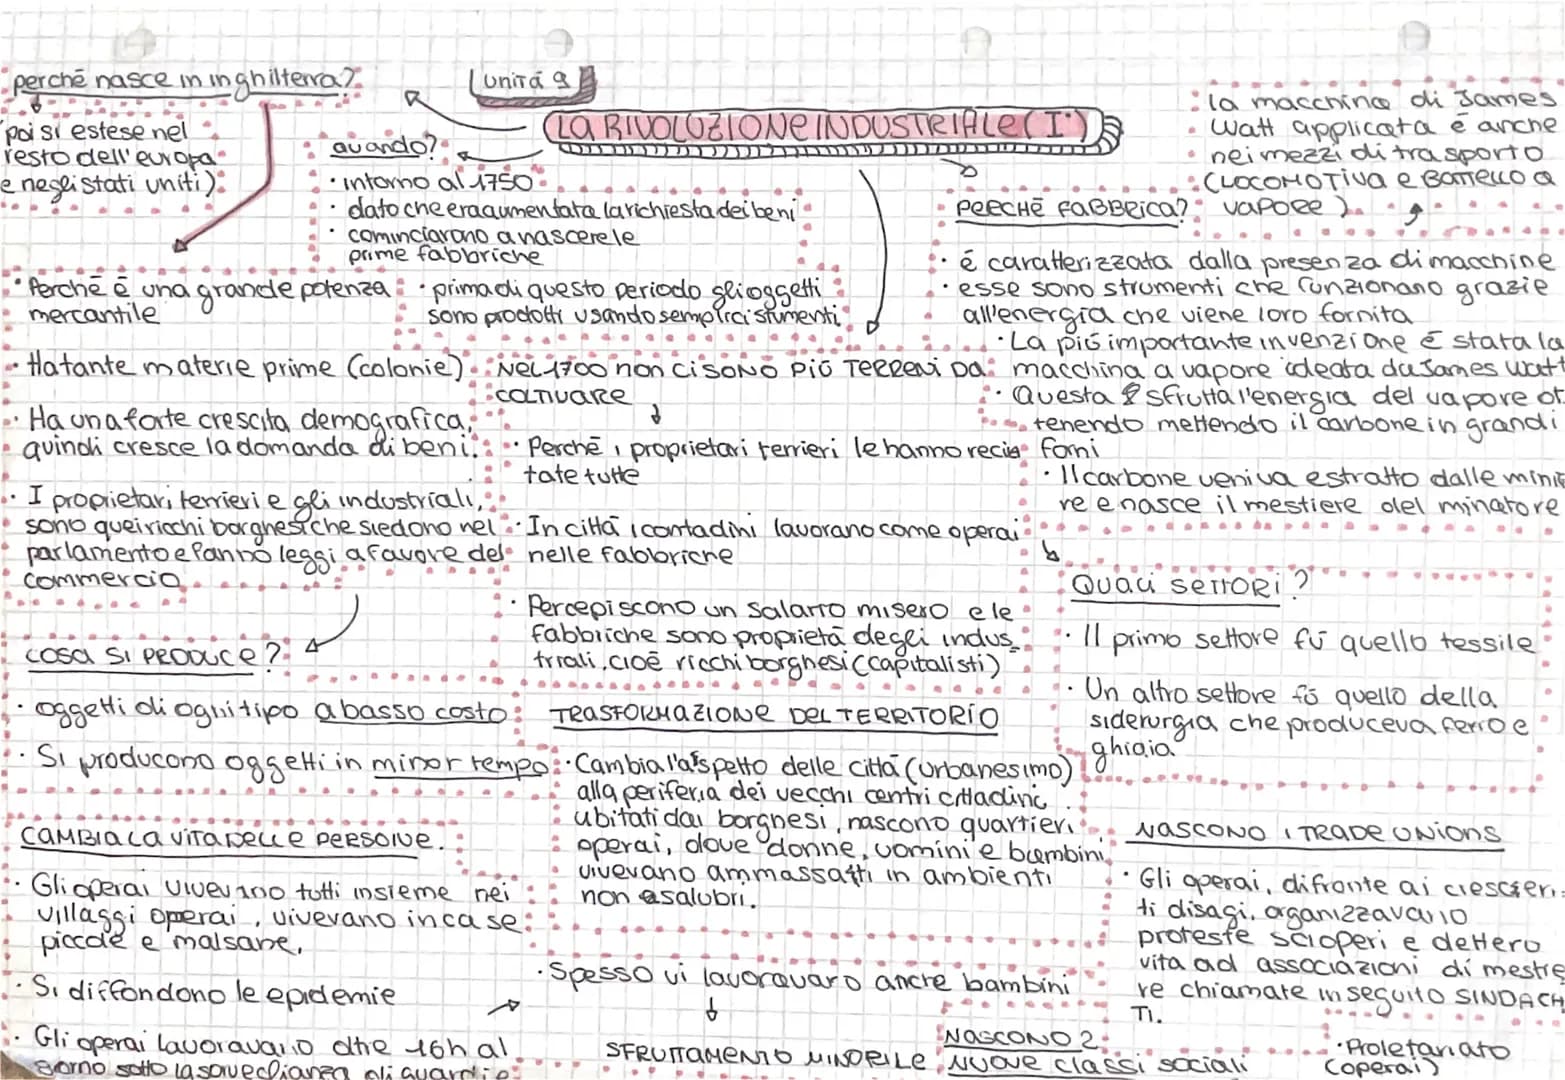 unità 9
LA RIVOLUZIONE INDUSTRIALE (I°)
perché nasce in inghilterra?
poi si estese nel
resto dell'europa
e negli stati uniti)
quando?
· intorno al 1750
· dato che era aumentata la richiesta dei beni
· cominciarono a nascere le
prime fabbriche
· prima di questo periodo gli oggetti
sono prodotti usando semplici strumenti
· Perché è una grande potenza
mercantile
· Ha tante materie prime (colonie)
· Ha una forte crescita demografica,
quindi cresce la domanda di beni.
· I proprietari terrieri e gli industriali,
sono quei ricchi borghesi che siedono nel
parlamento e fanno leggi a favore del
commercio
COSA SI PRODUCE?
· oggetti di ogni tipo a basso costo
· Si producono oggetti in minor tempo
CAMBIA LA VITA DELLE PERSONE.
· Gli operai vivevano tutti insieme nei
villaggi operai, vivevano in case
piccole e malsane,
· Si diffondono le epidemie
· Gli operai lavoravano oltre 16h al
giorno sotto la sorveglianza di guardie
NEL 1700 non ci SONO PIÙ TERRENI DA
COLTIVARE
· Perché i proprietari terrieri le hanno recin
tate tutte
· In città i contadini lavorano come operai
nelle fabbriche
· Percepiscono un salario misero e le
fabbriche sono proprietà degli indus
triali, cioè ricchi borghesi (capitalisti)
TRASFORMAZIONE DEL TERRITORIO
· Cambia l'aspetto delle città (urbanesimo)
alla periferia dei vecchi centri cittadini
abitati dai borghesi, nascono quartieri
operai, dove donne, uomini e bambini
vivevano ammassatti in ambienti
non salubri.
· Spesso vi lavoravano anche bambini
SFRUTTAMENTO MINORILE
la macchina di James
Watt applicata è anche
nei mezzi di trasporto
(LOCOMOTIVA e BATTELLO a
VAPORE).
PERCHÉ FABBRICA?
· è caratterizzata dalla presenza di macchine
· esse sono strumenti che funzionano grazie
all'energia che viene loro fornita
· La più importante invenzione è stata la
macchina a vapore ideata da James Watt
· Questa sfrutta l'energia del vapore ot
tenendo mettendo il carbone in grandi
forni
· Il carbone veniva estratto dalle minie
re e nasce il mestiere del minatore
QUALI SETTORI?
· Il primo settore fù quello tessile
· Un altro settore fù quello della
siderurgia che produceva ferro e
ghiaia
NASCONO I TRADE UNIONS
· Gli operai, difronte ai crescien
ti disagi, organizzavano
proteste scioperi e dettero
vita ad associazioni di mestie
re chiamate in seguito SINDACA
TI.
NASCONO 2
NUOVE classi sociali
· Proletariato
(operai)